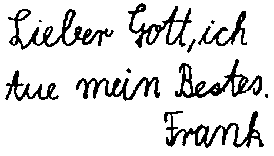 Lieber Gott, ich
tue mein Bestes.
Frank